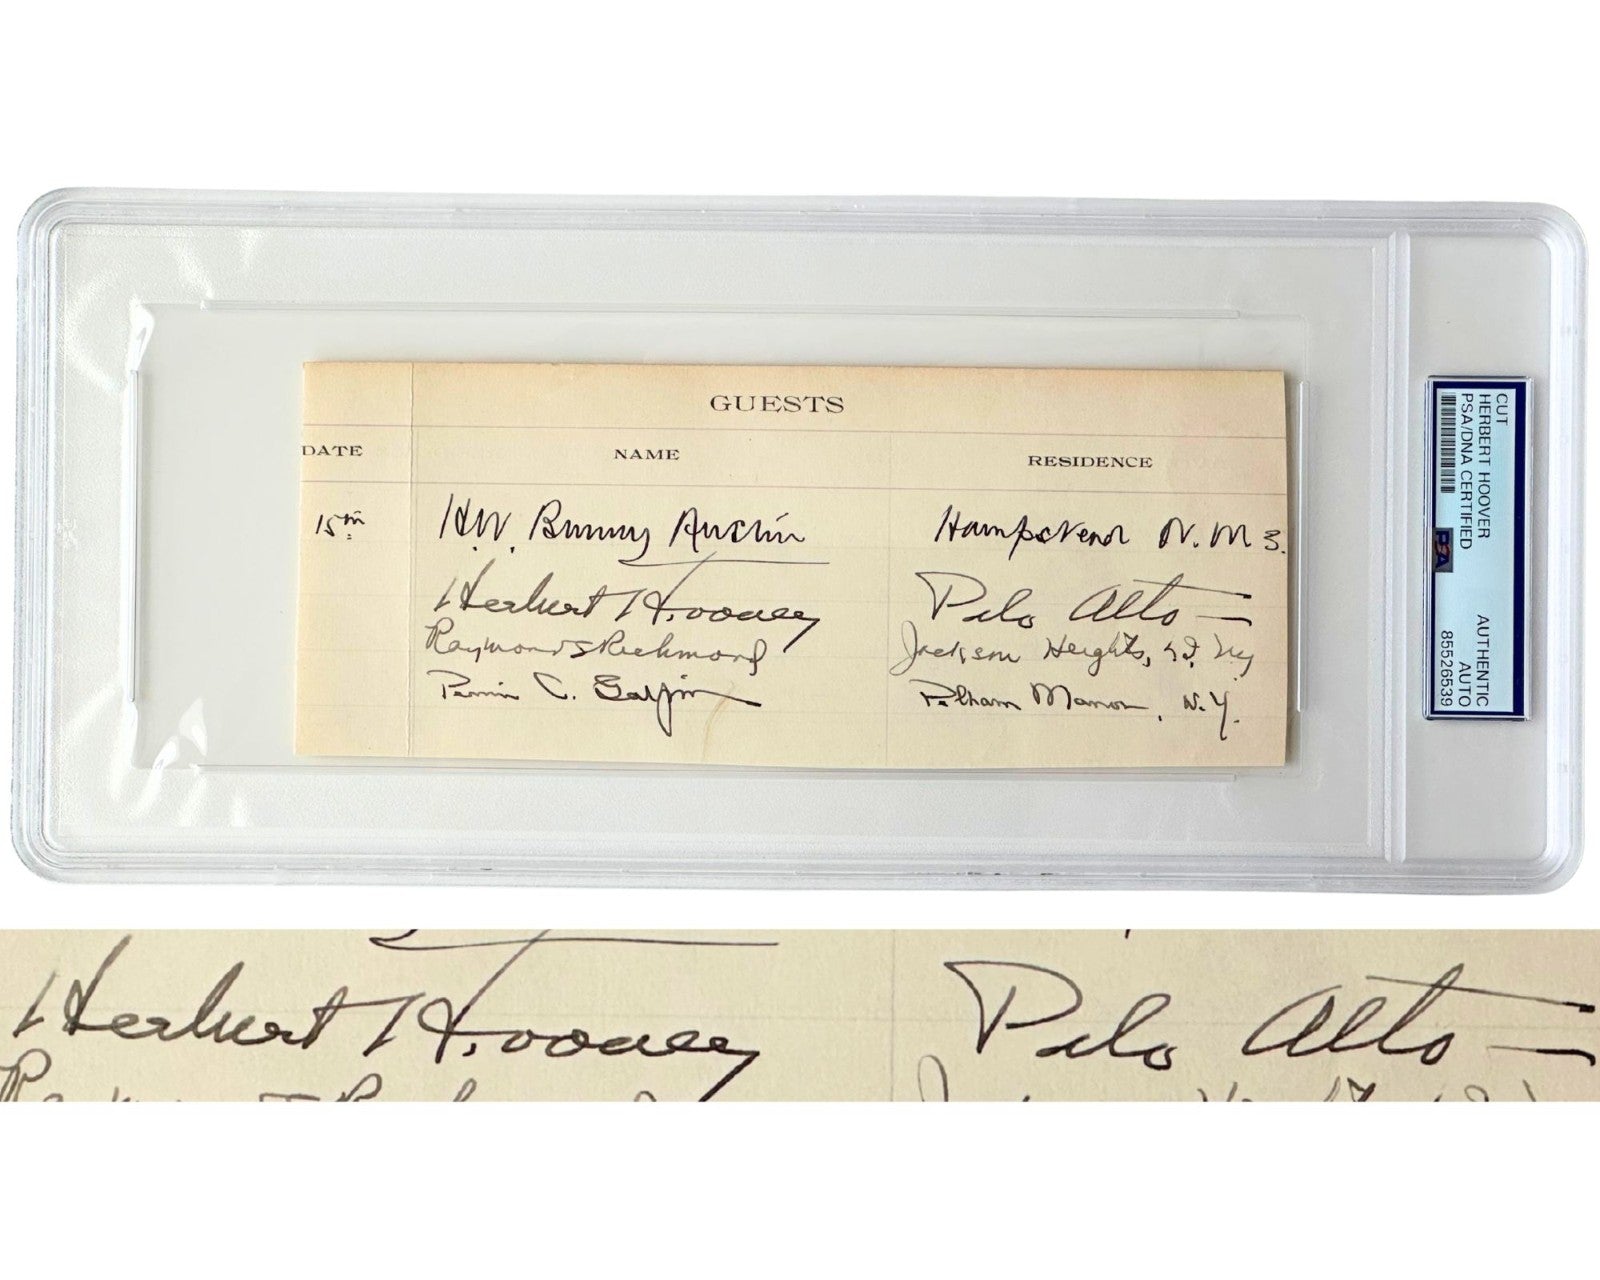 GUESTS
DATE NAME RESIDENCE
15th H.W. Bunny Austin Hampstead N.W. 3.
Herbert Hoover Palo Alto
Raymond S Richmond Jackson Heights, N.Y.
C. Pelham Manor, N.Y.
CUT
HERBERT HOOVER
PSA/DNA CERTIFIED
PSA
AUTHENTIC
AUTO
85526539
Herbert Hoover Palo Alto